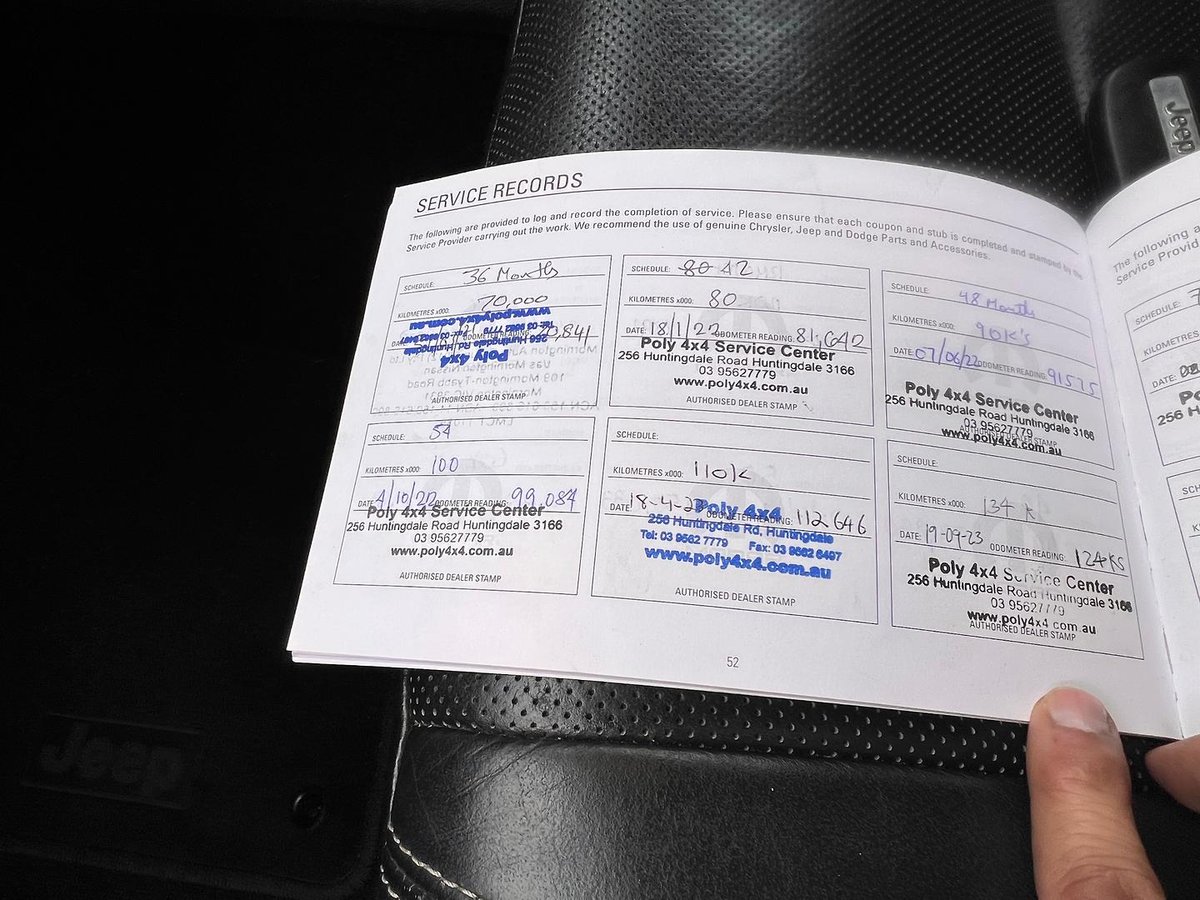 Jeep
SERVICE RECORDS
The following are provided to log and record the completion of service. Please ensure that each coupon and stub is completed and stamped by the
Service Provider carrying out the work. We recommend the use of genuine Chrysler, Jeep and Dodge Parts and Accessories.
SCHEDULE: 36 Months
KILOMETRES x000: 70,000
www.poly4x4.com.au
Tel: 03 9562 7779 Fax: 03 9562 6497
256 Huntingdale Rd, Huntingdale
Poly 4x4
AUTHORISED DEALER STAMP
SCHEDULE: 80 42
KILOMETRES x000: 80
DATE: 18/1/22 ODOMETER READING: 81,642
Poly 4x4 Service Center
256 Huntingdale Road Huntingdale 3166
03 95627779
www.poly4x4.com.au
AUTHORISED DEALER STAMP
SCHEDULE: 48 Months
KILOMETRES x000: 90K's
DATE: 07/06/22 ODOMETER READING: 91575
Poly 4x4 Service Center
256 Huntingdale Road Huntingdale 3166
03 95627779
AUTHORISED DEALER STAMP
www.poly4x4.com.au
SCHEDULE: 54
KILOMETRES x000: 100
DATE: 4/10/22 ODOMETER READING: 99,084
Poly 4x4 Service Center
256 Huntingdale Road Huntingdale 3166
03 95627779
www.poly4x4.com.au
AUTHORISED DEALER STAMP
SCHEDULE:
KILOMETRES x000: 110K
DATE: 18-4-23 ODOMETER READING: 112646
Poly 4x4
256 Huntingdale Rd, Huntingdale
Tel: 03 9562 7779 Fax: 03 9562 6497
www.poly4x4.com.au
AUTHORISED DEALER STAMP
SCHEDULE:
KILOMETRES x000: 134 K
DATE: 19-09-23 ODOMETER READING: 124KS
Poly 4x4 Service Center
256 Huntingdale Road Huntingdale 3166
03 95627779
www.poly4x4.com.au
AUTHORISED DEALER STAMP
52
The following a
Service Provid
SCHEDULE:
KILOMETRES
DATE:
256 H
Jeep